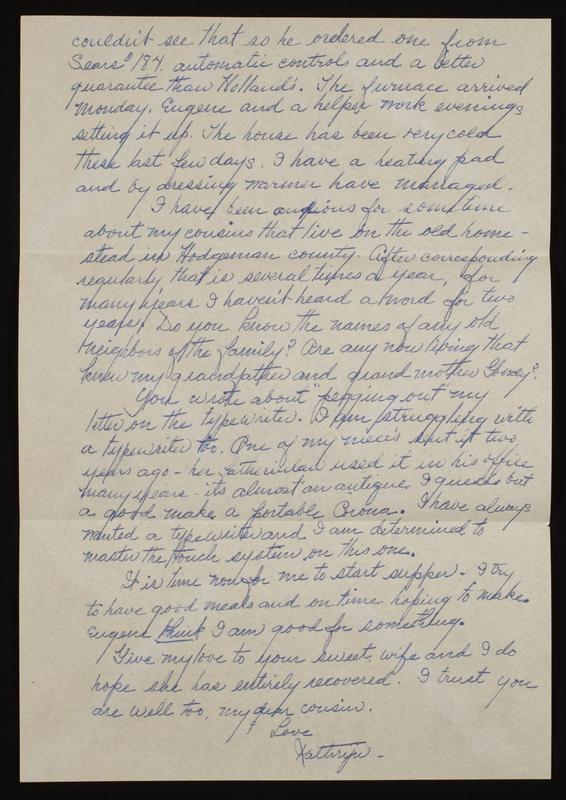 couldn't see that so he ordered one from
Sears $184. automatic controls and a better
guarantee than Holland's. The furnace arrived
Monday. Eugene and a helper work evenings
setting it up. The house has been very cold
these last few days. I have a heating pad
and by dressing warmer have managed.
I have been anxious for sometime
about my cousins that live on the old home-
stead in Hodgeman county. After corresponding
regularly that is several times a year, for
many years I haven't heard a word for two
years. Do you know the names of any old
neighbors of the family? Are any now living that
knew my grandfather and grand mother
You wrote about "pegging out" my
letter on the typewriter. I am struggling with
a typewriter too. One of my niece's sent it two
years ago - her fatherinlaw used it in his office
many years - its almost an antique I guess but
a good make a portable Corona. I have always
wanted a typewriter and I am determined to
master the touch system on this one.
It is time now for me to start supper - I try
to have good meals and on time hoping to make
Eugene think I am good for something.
Give my love to your sweet wife and I do
hope she has entirely recovered. I trust you
are well too, my dear cousin.
Love
Kathryn -